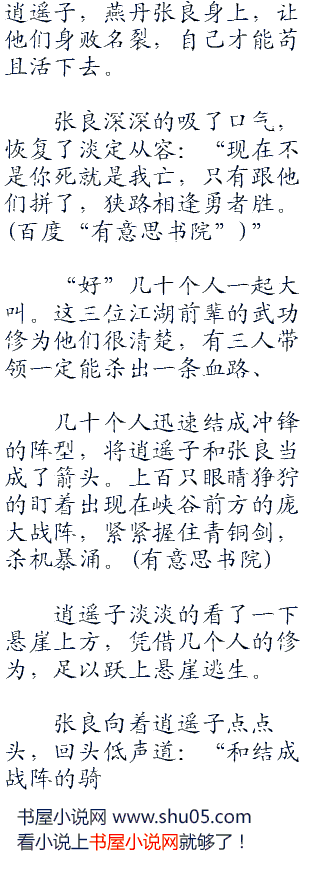 逍遥子，燕丹张良身上，让
他们身败名裂，自己才能苟
且活下去。
张良深深的吸了口气，
恢复了淡定从容：“现在不
是你死就是我亡，只有跟他
们拼了，狭路相逢勇者胜。
(百度“有意思书院”)”
“好”几十个人一起大
叫。这三位江湖前辈的武功
修为他们很清楚，有三人带
领一定能杀出一条血路、
几十个人迅速结成冲锋
的阵型，将逍遥子和张良当
成了箭头。上百只眼睛狰狞
的盯着出现在峡谷前方的庞
大战阵，紧紧握住青铜剑，
杀机暴涌。(有意思书院)
逍遥子淡淡的看了一下
悬崖上方，凭借几个人的修
为，足以跃上悬崖逃生。
张良向着逍遥子点点
头，回头低声道：“和结成
战阵的骑
书屋小说网 www.shu05.com
看小说上书屋小说网就够了！